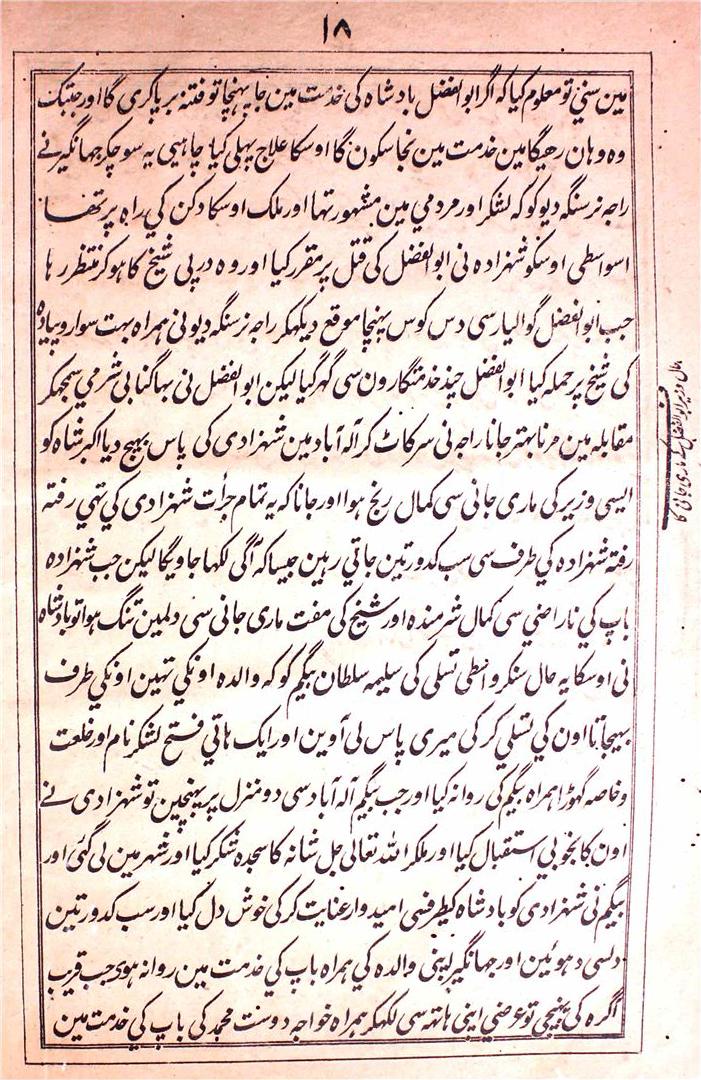 ۱۸
مین سني تو معلوم کیا کہ اگر ابو الفضل بادشاہ کی خدمت مین جا پہنچا تو فتنہ برپا کری گا اور جبتک
وہ وہان رھیگا مین خدمت مین نجا سکون گا اوسکا علاج پہلی کیا چاہیی یہ سوچکر جہانگیر نے
راجہ نرسنگہ دیو کو کہ لشکر اور مردمي مین مشہور تہا اور ملک اوسکا دکن کی راہ پر تھا
اسواسطی اوسکو شہزادہ نی ابو الفضل کی قتل پر مقرر کیا اور وہ در پی شیخ کا ہو کر منتظر رہا
جب ابو الفضل گوالیار سی دس کوس پہنچا موقع دیکہکر راجہ نرسنگہ دیو نی ہمراہ بہت سوار و پیادہ
کی شیخ پر حملہ کیا ابو الفضل چند خدمتگارون سی گہر گیا لیکن ابو الفضل نی بہاگنا بی شرمي سمجہکر
مقابلہ مین مرنا بہتر جانا راجہ نی سر کاٹ کر الہ آباد مین شہزادی کی پاس بہیج دیا اکبر شاہ کو
ایسی وزیر کی ماری جانی سی کمال رنج ہوا اور جانا کہ یہ تمام جرأت شہزادی کي تہي رفتہ
رفتہ شہزادہ کي طرف سی سب کدورتین جاتي رہین جیسا کہ آگی لکہا جاویگا لیکن جب شہزادہ
باپ کي ناراضي سی کمال شرمندہ اور شیخ کی مفت ماری جانی سی دلمین تنگ ہوا تو بادشاہ
نی اوسکا یہ حال سنکر واسطی تسلی کی سلیمہ سلطان بیگم کو کہ والدہ اونکي تہین اونکي طرف
بہیجا تا اون کي تسلي کر کی میری پاس لی آوین اور ایک ہاتي فتح لشکر نام اور خلعت
و خاصہ گہوڑا ہمراہ بیگم کی روانہ کیا اور جب بیگم الہ آباد سی دو منزل پر پہنچین تو شہزادی نے
اون کا بخوبي استقبال کیا اور ملکر اللہ تعالی جل شانہ کا سجدہ شکر کیا اور شہر مین لی گئی اور
بیگم نی شہزادی کو بادشاہ کیطرفسی امیدوار عنایت کر کی خوش دل کیا اور سب کدورتین
دلسی دہوئین اور جہانگیر اپنی والدہ کي ہمراہ باپ کي خدمت مین روانہ ہوی جب قریب
اگرہ کی پہنچی تو عرضي اپنی ہاتہہ سی لکہکر ہمراہ خواجہ دوست محمد کی باپ کي خدمت مین
حال وزیر ابو الفضل کے ماری جانی کا